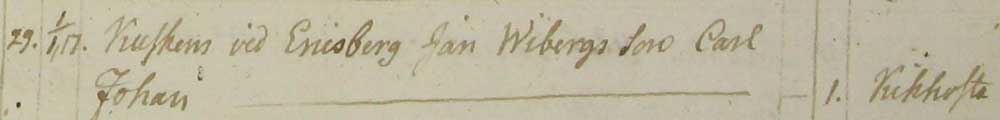 29. 1/1, 17. Kuskens vid Ericsberg Jan Wibergs Son Carl
Johan — 1. Kikhosta